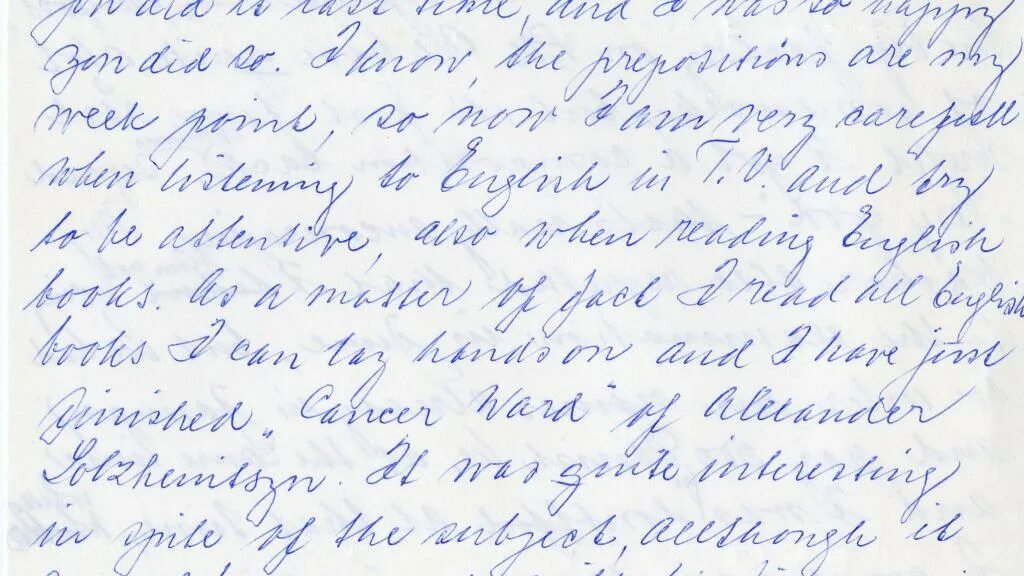 you did it last time, and I was so happy
you did so. I know, the prepositions are my
week point, so now I am very carefull
when listening to English in T.V. and try
to be attentive, also when reading English
books. As a matter of fact I read all English
books I can lay hands on and I have just
finished „Cancer Ward" of Alexander
Solzhenitszyn. It was quite interesting
in spite of the subject, allthough it